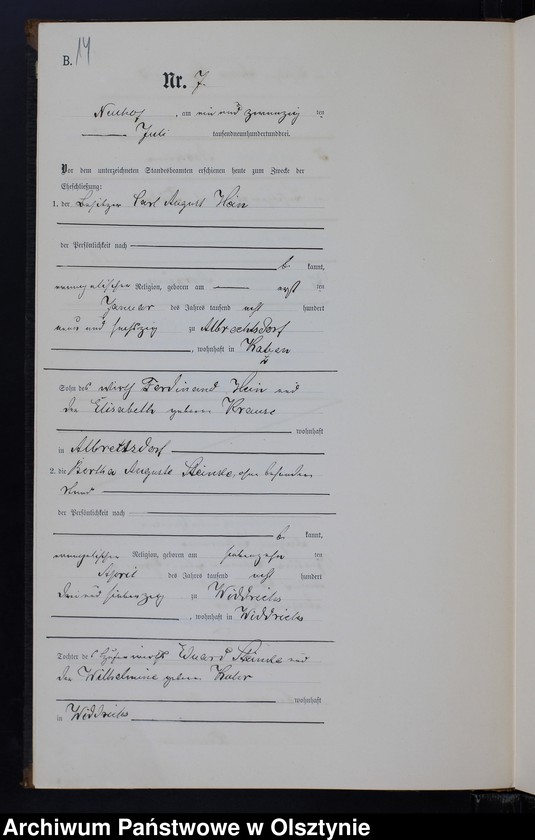 B. 14
Nr. 7
Neuhof, am ein und zwanzig ten
Juli tausendneunhundertunddrei.
Vor dem unterzeichneten Standesbeamten erschienen heute zum Zwecke der
Eheschließung:
1. der Besitzer Carl August Hein
der Persönlichkeit nach
be kannt,
evangelischer Religion, geboren am acht ten
Januar des Jahres tausend acht hundert
neun und sechszig zu Albrechtsdorf
, wohnhaft in
Sohn des Wirth Ferdinand Hein und
der Elisabeth geborene Krause
wohnhaft
in Albrechtsdorf
2. die Bertha Auguste Steinke, ohne besonderen
Stand
der Persönlichkeit nach
be kannt,
evangelischer Religion, geboren am siebenzehn ten
April des Jahres tausend acht hundert
drei und siebenzig zu Widdrichs
, wohnhaft in Widdrichs
Tochter des Eduard Steinke und
der Wilhelmine geborene
wohnhaft
in Widdrichs
Archiwum Państwowe w Olsztynie